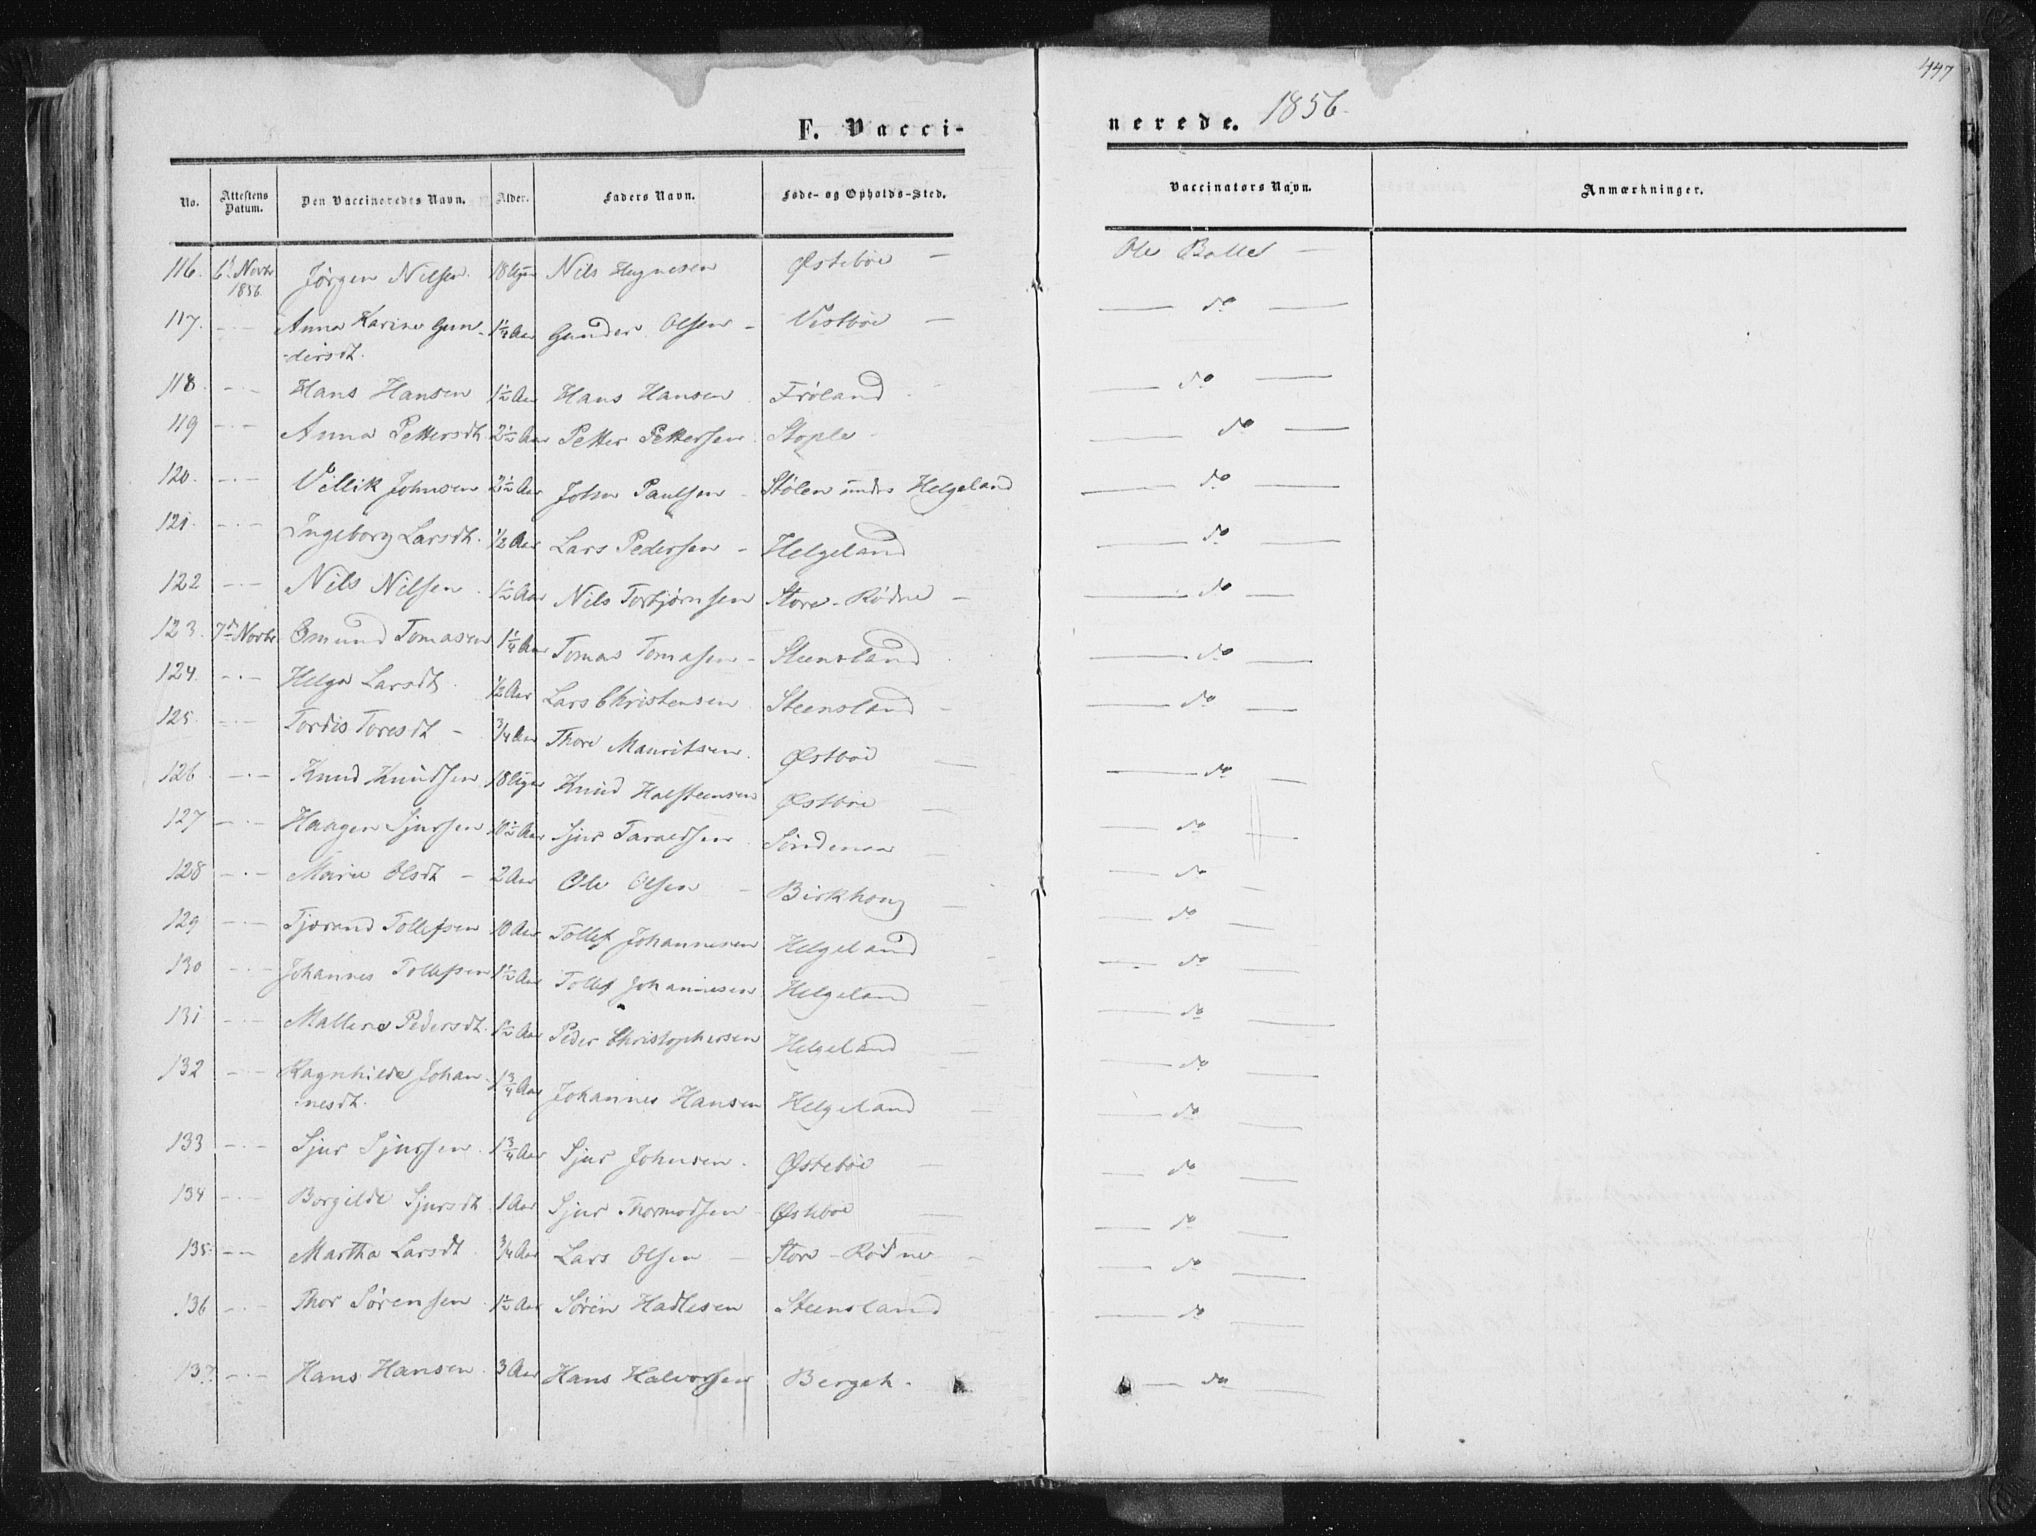 447
F. Vacci-
nerede. 1856.
No. Attestens Datum. Den Vaccineredes Navn. Alder. Faders Navn. Føde- og Opholds-Sted. Vaccinators Navn. Anmærkninger.
116. 6t Novbr 1856. Jørgen Nilsen. 18 Uger Nils Østebøe — Ole Balle —
117. — . — Anna Karine Gun-
dersdt. 1¼ Aar Gunder Olsen - Vestbøe — — do —
118. — . — Hans Hansen 1½ Aar Hans Hansen Frøland - — do —
119 — . — Anna Pettersdt. 2½ Aar Petter Pettersen Stople - — do —
120. — . — Villik Johnsen 2½ Aar John Paulsen - Stølen under Helgeland — do —
121. — . — Ingeborg Larsdt. ½ Aar Lars Pedersen - Helgeland — do —
122 — . — Nils Nilsen. 1½ Aar Nils Torbjørnsen Store-Rødne — — do —
123. 7de Novbr Osmund Tomasen 1¼ Aar Tomas Tomasen - Steensland — do —
124. — . — Helga Larsdt. ½ Aar Lars Christensen Steensland - — do —
125. — . — Tordis Toresdt - ¾ Aar Thore Mauritsen. Østbøe — — do —
126. — . — Knud Knudsen 18 Uger Knud Halsteensen Østbøe — — do —
127 — . — Haagen Sjursen 10½ Aar Sjur Taraldsen Søndenaa — — do —
128 — . — Marie Olsdt - 2 Aar Ole Olsen - Birkhoug — — do —
129 — . — Tjærand Tollefsen 10 Aar Tollef Johannesen Helgeland - — do —
130 — . — Johannes Tollefsen 1½ Aar Tollef Johannesen Helgeland — — do —
131 — . — Mallene Pedersdt. 1½ Aar Peder Christophersen Helgeland — — do —
132 — . — Ragnhilde Johan-
nesdt. 1¾ Aar Johannes Hansen Helgeland — — do —
133 — . — Sjur Sjursen. 1¾ Aar Sjur Johnsen. Østebøe — — do —
134 — . — Borgilde Sjursdt 1 Aar Sjur Thormodsen - Østebøe — — do —
135. — — Martha Larsdt. ¾ Aar Lars Olsen — Store-Rødne - — do —
136 — . — Thor Sørensen 1½ Aar Søren Hadlesen Steensland — do —
137. — . — Hans Hansen 3 Aar Hans Halvorsen - — do —